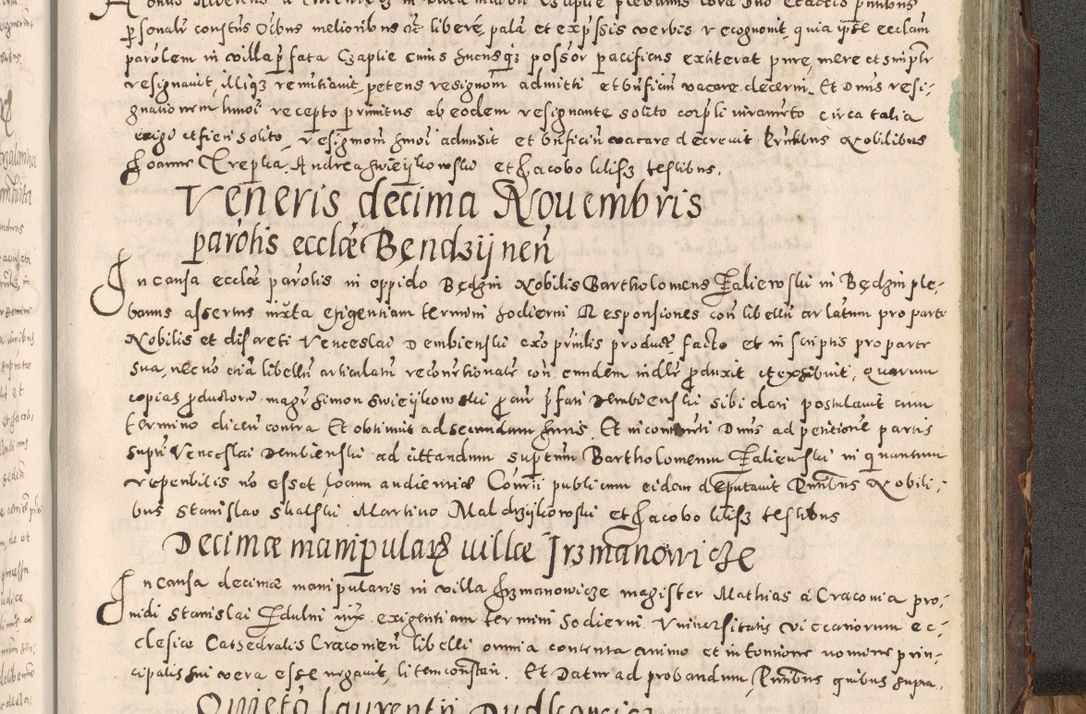 personalr constus Oibus melioribus etc libere, pala et expssis verbis recognouit, quia ipse ecclam
parolem in villa pfata Czaplie cuius huiusqz possor pacificus extiterat pure, mere et simplr
resignauit, illiqz remitiauit, petens resignom admitti et bnficiu vacare decerni. Et Dnus resi-
gnationem hmoi recepto primitus ab eodem resignante solito corpli iuramento circa talia
exigi et fieri solito, resignom hmoi admisit et bnficiu vacare decreuit Pntibus Nobilibus
Joanne Creplia, Andrea Swieijkowski et Jacobo testibus.
Veneris decima Nouembris
parolis ecclae Bendzijnen
In causa ecclae parolis in oppido Będzin Nobilis Bartholomeus Galiewski in Będzin ple-
banus assertus iuxta exigentiam termini hodierni Responsiones con libellu arlatum pro parte
Nobilis et discreti Venceslai Dembienski ex opnilis produc facto et in scriptis pro parte
sua, nec no etia libellu articulatu reconuentionale con eundem indlr produxit et exhibuit, quorum
copias productoru magr Simon Swieijkowski pcur pfati Dembienski sibi dari postulauit cum
termino dicen contra Et obtinuit ad secundum Juris. Et in continenti Dnus ad petitione partis
supra Venceslai Dembienski ad cittandum supstum Bartholomeum Galiewski in quantum
repenbilis no esset, locum audientiae Consrii publicum eidem deputauit Pntibus Nobili-
bus Stanislao Skalski Martino Maldrzijkowski et Jacobo testibus
Decimae manipularis villae Jrzmanowicze
In causa decimae manipularis in villa Jrzmanowicze magister Mathias a Cracouia pro-
uidi Stanislai exigentiam termini hodierni Vniuersitatis Viccariorum ec-
clesiae Cathedralis Cracouien libelli omnia contenta animo et intentione nomine prin-
cipalis sui vera esse negauit, litem constan. Et Datur ad probandum, Pntibus quibus supra.
Quieto Laurentii